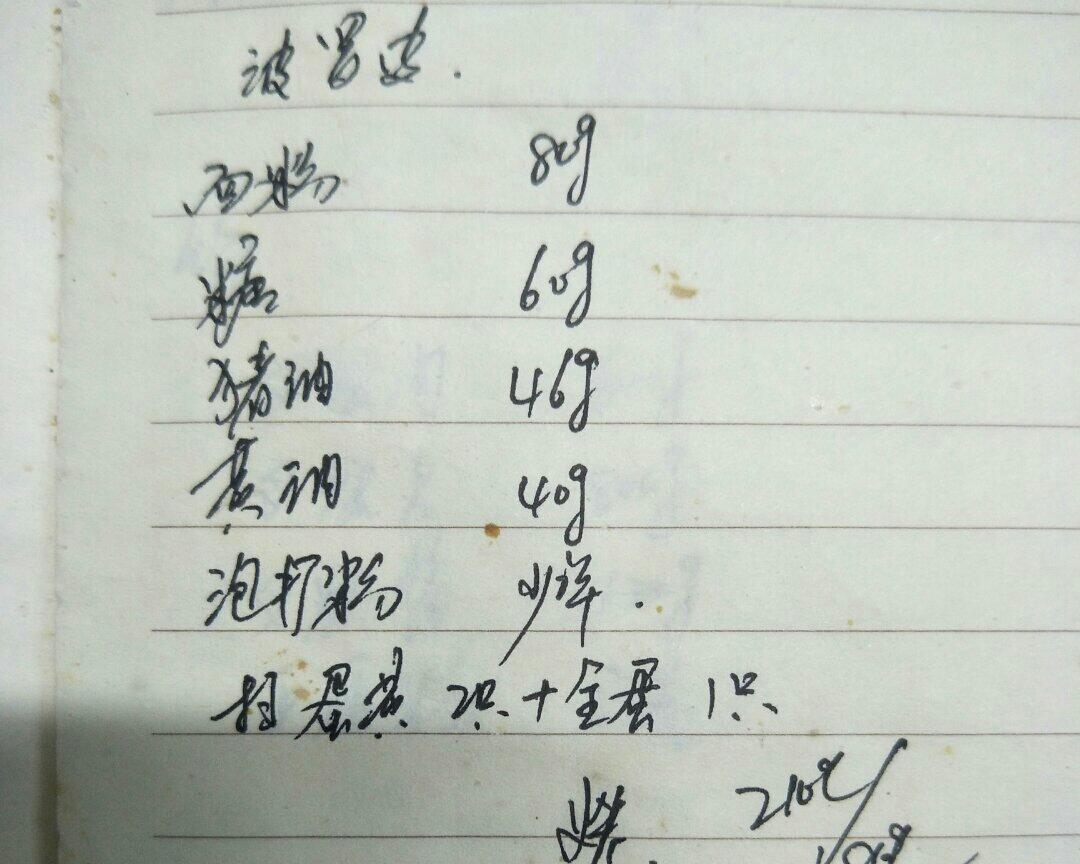 波罗皮.
面粉 80g
糖 60g
猪油 46g
黄油 40g
泡打粉 少许.
扫蛋黄 2只+全蛋 1只
210℃/